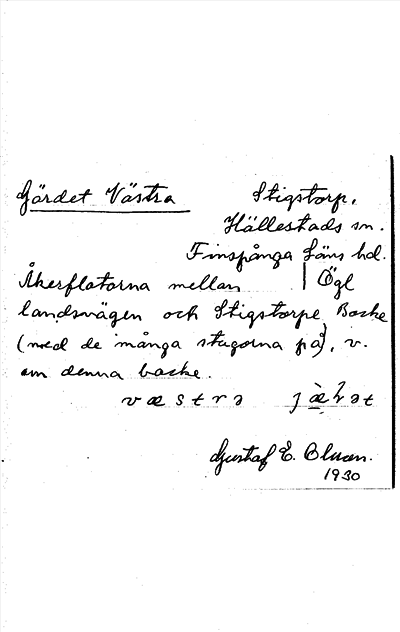 Gärdet Västra
Stigstorp,
Hällestads sn.
Finspånga läns hd.
Ögl
Åkerflatorna mellan
landsvägen och Stigstorps Backe
(med de många stugorna på), v.
om denna backe.
v æ s t r ə
Gustaf E.
1930